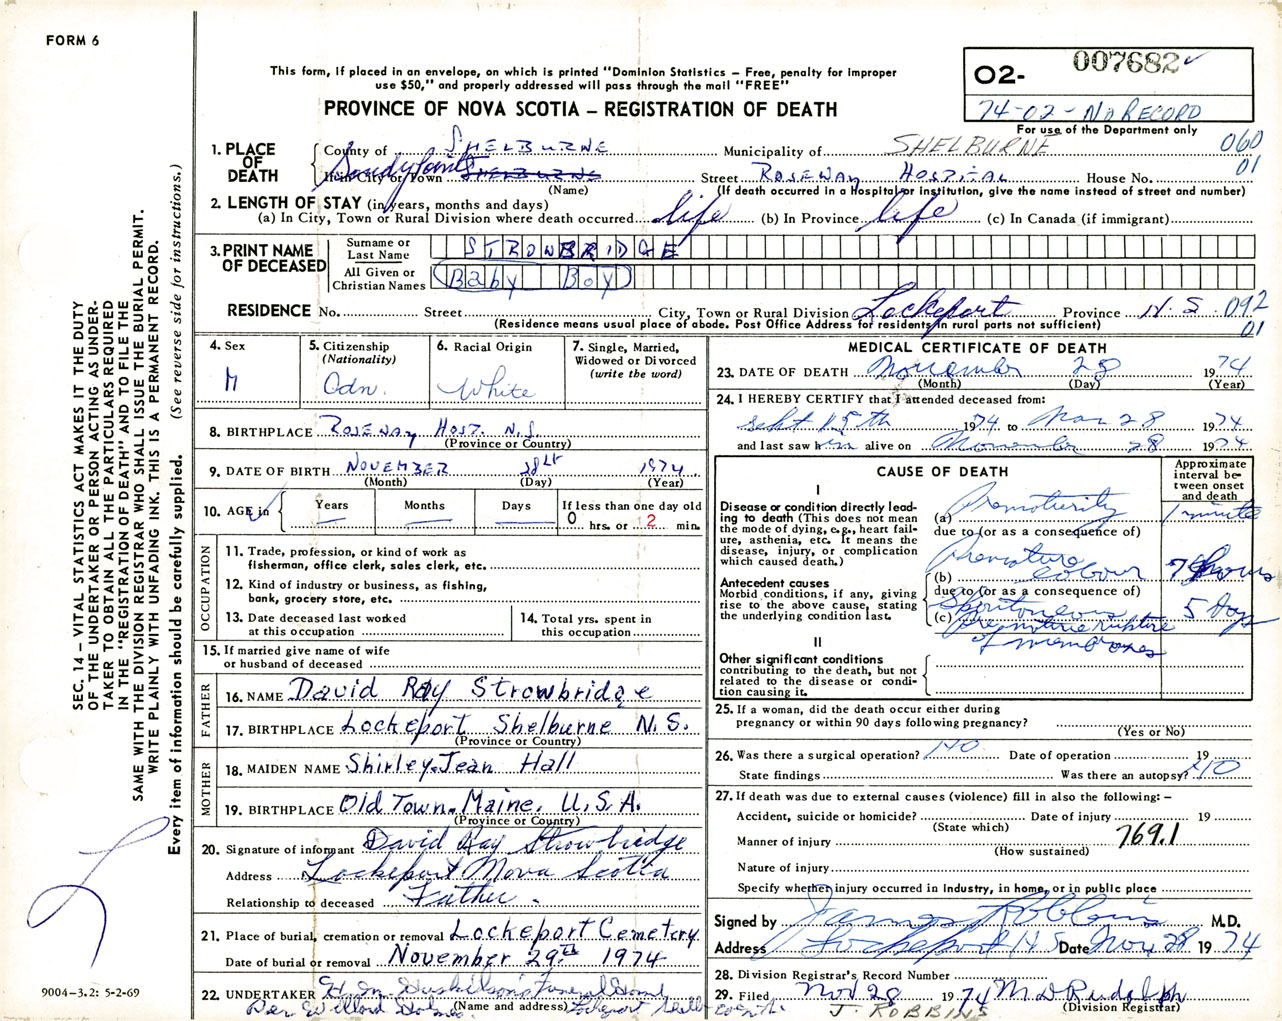 FORM 6
This form, if placed in an envelope, on which is printed "Dominion Statistics – Free, penalty for improper
use $50," and properly addressed will pass through the mail "FREE"
PROVINCE OF NOVA SCOTIA – REGISTRATION OF DEATH
02- 007682
74-02-No RECORD
For use of the Department only
SEC. 14 – VITAL STATISTICS ACT MAKES IT THE DUTY
OF THE UNDERTAKER OR PERSON ACTING AS UNDER-
TAKER TO OBTAIN ALL THE PARTICULARS REQUIRED
IN THE "REGISTRATION OF DEATH" AND TO FILE THE
SAME WITH THE DIVISION REGISTRAR WHO SHALL ISSUE THE BURIAL PERMIT.
WRITE PLAINLY WITH UNFADING INK. THIS IS A PERMANENT RECORD.
Every item of information should be carefully supplied. (See reverse side for instructions.)
1. PLACE OF DEATH
County of SHELBURNE Municipality of SHELBURNE 060
If in City or Town Sandy Point SHELBURNE Street ROSEWAY HOSPITAL House No. 01
(Name) (If death occurred in a Hospital or institution, give the name instead of street and number)
2. LENGTH OF STAY (in years, months and days)
(a) In City, Town or Rural Division where death occurred life (b) In Province life (c) In Canada (if immigrant)
3. PRINT NAME OF DECEASED
Surname or Last Name STROWBRIDGE
All Given or Christian Names Baby Boy
RESIDENCE No. Street City, Town or Rural Division Lockeport Province N.S. 092
(Residence means usual place of abode. Post Office Address for residents in rural parts not sufficient) 01
4. Sex M
5. Citizenship (Nationality) Cdn.
6. Racial Origin White
7. Single, Married, Widowed or Divorced (write the word)
8. BIRTHPLACE ROSEWAY HOSP. N.S.
(Province or Country)
9. DATE OF BIRTH NOVEMBER 28th 1974
(Month) (Day) (Year)
10. AGE in Years Months Days If less than one day old
0 hrs. or 2 min.
OCCUPATION
11. Trade, profession, or kind of work as
fisherman, office clerk, sales clerk, etc.
12. Kind of industry or business, as fishing,
bank, grocery store, etc.
13. Date deceased last worked
at this occupation
14. Total yrs. spent in
this occupation
15. If married give name of wife
or husband of deceased
FATHER
16. NAME David Ray Strowbridge
17. BIRTHPLACE Lockeport Shelburne N.S.
(Province or Country)
MOTHER
18. MAIDEN NAME Shirley Jean Hall
19. BIRTHPLACE Old Town. Maine. U.S.A.
(Province or Country)
20. Signature of informant David Ray Strowbridge
Address Lockeport Nova Scotia
Relationship to deceased Father.
21. Place of burial, cremation or removal Lockeport Cemetery
Date of burial or removal November 29th 1974
22. UNDERTAKER H M Huskilson's Funeral Home
(Name and address) Lockeport
MEDICAL CERTIFICATE OF DEATH
23. DATE OF DEATH November 28 1974
(Month) (Day) (Year)
24. I HEREBY CERTIFY that I attended deceased from:
Sept 15th 1974 to Nov 28 1974
and last saw him alive on November 28 1974
CAUSE OF DEATH
Approximate interval between onset and death
I
Disease or condition directly lead-
ing to death (This does not mean
the mode of dying, e.g., heart fail-
ure, asthenia, etc. It means the
disease, injury, or complication
which caused death.)
(a) Prematurity 1 minute
due to (or as a consequence of)
Antecedent causes
Morbid conditions, if any, giving
rise to the above cause, stating
the underlying condition last.
(b) Premature labour 7 hours
due to (or as a consequence of)
(c) Spontaneous premature rupture of membranes 5 Days
II
Other significant conditions
contributing to the death, but not
related to the disease or condi-
tion causing it.
25. If a woman, did the death occur either during
pregnancy or within 90 days following pregnancy?
(Yes or No)
26. Was there a surgical operation? NO Date of operation 19
State findings Was there an autopsy? NO
27. If death was due to external causes (violence) fill in also the following: –
Accident, suicide or homicide? Date of injury 19
(State which)
Manner of injury 769.1
(How sustained)
Nature of injury
Specify whether injury occurred in industry, in home, or in public place
Signed by James Robbins M.D.
Address Lockeport N S Date Nov 28 1974
28. Division Registrar's Record Number
29. Filed Nov 28 1974 M D Rudolph
J. ROBBINS (Division Registrar)
9004–3.2: 5-2-69